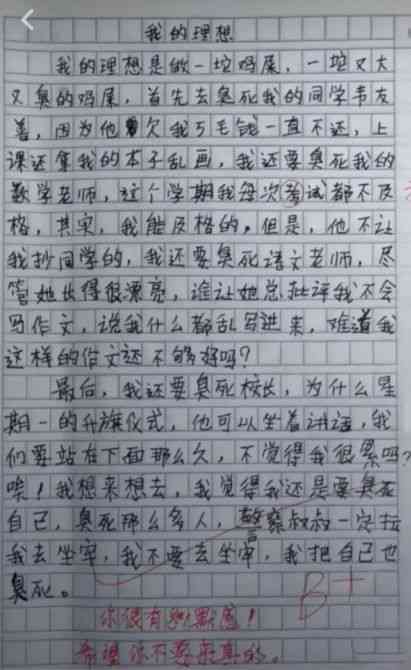 我的理想
我的理想是做一坨妈屎,一坨又大
又臭的妈屎,首先去臭死我的同学韦友
善,因为他欠我5毛钱一直不还,上
课还拿我的本子乱画,我还要臭死我的
数学老师,这个学期我每次考试都不及
格,其实,我能及格的,但是,他不让
我抄同学的,我还要臭死语文老师,尽
管她长得很漂亮,谁让她总批评我不会
写作文,说我什么都乱写进来,难道我
这样的作文还不够好吗?
最后,我还要臭死校长,为什么星
期一的升旗仪式,他可以坐着讲话,我
们要站在下面那么久,不觉得我很累吗?
唉!我想来想去,我觉得我还是要臭死
自己,臭死那么多人,警察叔叔一定拉
我去坐牢,我不要去坐牢,我把自己也
臭死。
B+
你很有幽默感!
希望你不要来真的。